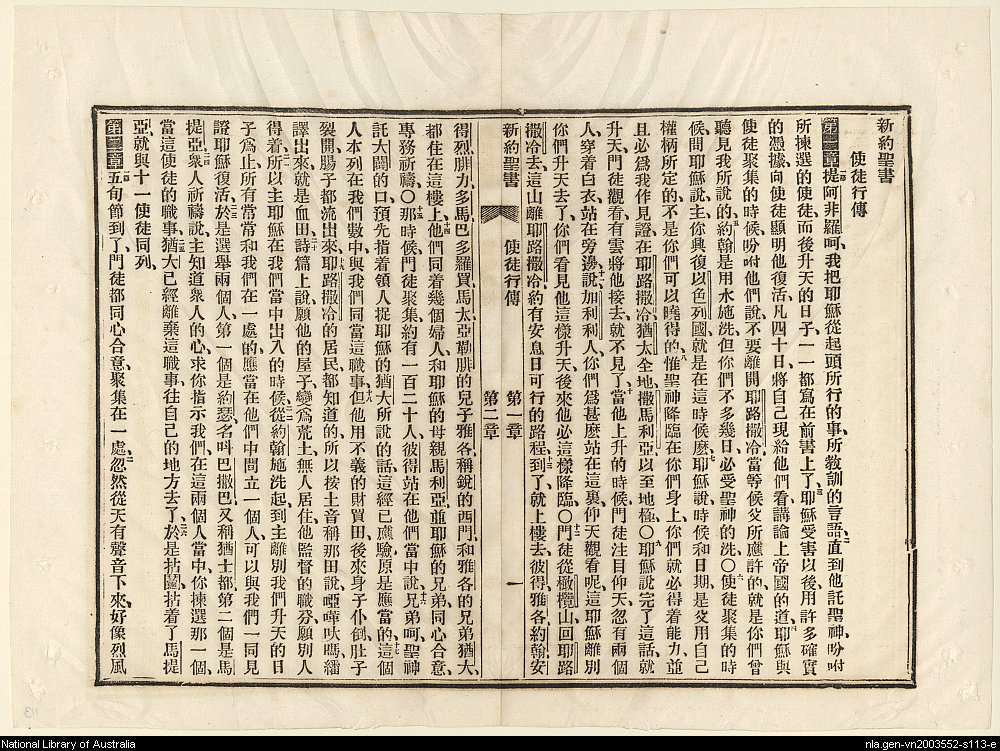 新約聖書
使徒行傳
第一章提阿非羅呵、我把耶穌從起頭所行的事、所教訓的言語、直到他託聖神、吩咐
所揀選的使徒、而後升天的日子、一一都寫在前書上了、耶穌受害以後、用許多確實
的憑據、向使徒顯明他復活、凡四十日、將自己現給他們看、講論上帝國的道、耶穌與
使徒聚集的時候、吩咐他們說、不要離開耶路撒冷、當等候父所應許的、就是你們曾
聽見我所說的、約翰是用水施洗、但你們不多幾日、必受聖神的洗、〇使徒聚集的時
候、問耶穌說、主你興復以色列國、就是在這時候麽、耶穌說、時候和日期、是父用自己
權柄所定的、不是你們可以曉得的、惟聖神降臨在你們身上、你們就必得着能力、並
且必爲我作見證、在耶路撒冷、猶太全地、撒馬利亞、以至地極、〇耶穌說完了這話、就
升天、門徒觀看、有雲將他接去、就不見了、當他上升的時候、門徒注目仰天、忽有兩個
人、穿着白衣、站在旁邊、說、加利利人、你們爲甚麽站在這裏仰天觀看呢、這耶穌離別
你們升天去了、你們看見他這樣升天、後來他必這樣降臨、〇門徒從橄欖山回耶路
撒冷去、這山離耶路撒冷約有安息日可行的路程、到了、就上樓去、彼得、雅各、約翰、安
新約聖書
使徒行傳
第一章
第二章
一
得烈、腓力、多馬、巴多羅買、馬太、亞勒腓的兒子雅各、稱銳的西門、和雅各的兄弟猶大、
都住在這樓上、他們同着幾個婦人、和耶穌的母親馬利亞、並耶穌的兄弟、同心合意、
專務祈禱、〇那時候門徒聚集、約有一百二十人、彼得站在他們當中說、兄弟呵、聖神
託大闢的口、預先指着領人捉耶穌的猶大所說的話、這經已應驗、原是應當的、這個
人本列在我們數中、與我們同當這職事、但他用不義的財買田、後來身子仆倒、肚子
裂開、腸子都流出來、耶路撒冷的居民都知道的、所以按土音稱那田說、啞嗶吠嗎、繙
譯出來、就是血田、詩篇上說、願他的屋子、變爲荒土、無人居住、他監督的職分、願別人
得着、所以主耶穌在我們當中出入的時候、從約翰施洗起、到主離別我們升天的日
子爲止、所有常常和我們在一處的、應當在他們中間立一個人、可以與我們一同見
證耶穌復活、於是選舉兩個人、第一個是約瑟、名呌巴撒巴、又稱猶士都、第二個是馬
提亞、衆人祈禱說、主知道衆人的心、求你指示我們、在這兩個人當中、你揀選那一個
當這使徒的職事、猶大已經離棄這職事、往自己的地方去了、於是拈鬮、拈着了馬提
亞、就與十一使徒同列、
第二章五旬節到了、門徒都同心合意、聚集在一處、忽然從天有聲音下來、好像烈風
National Library of Australia
nla.gen-vn2003552-s113-e